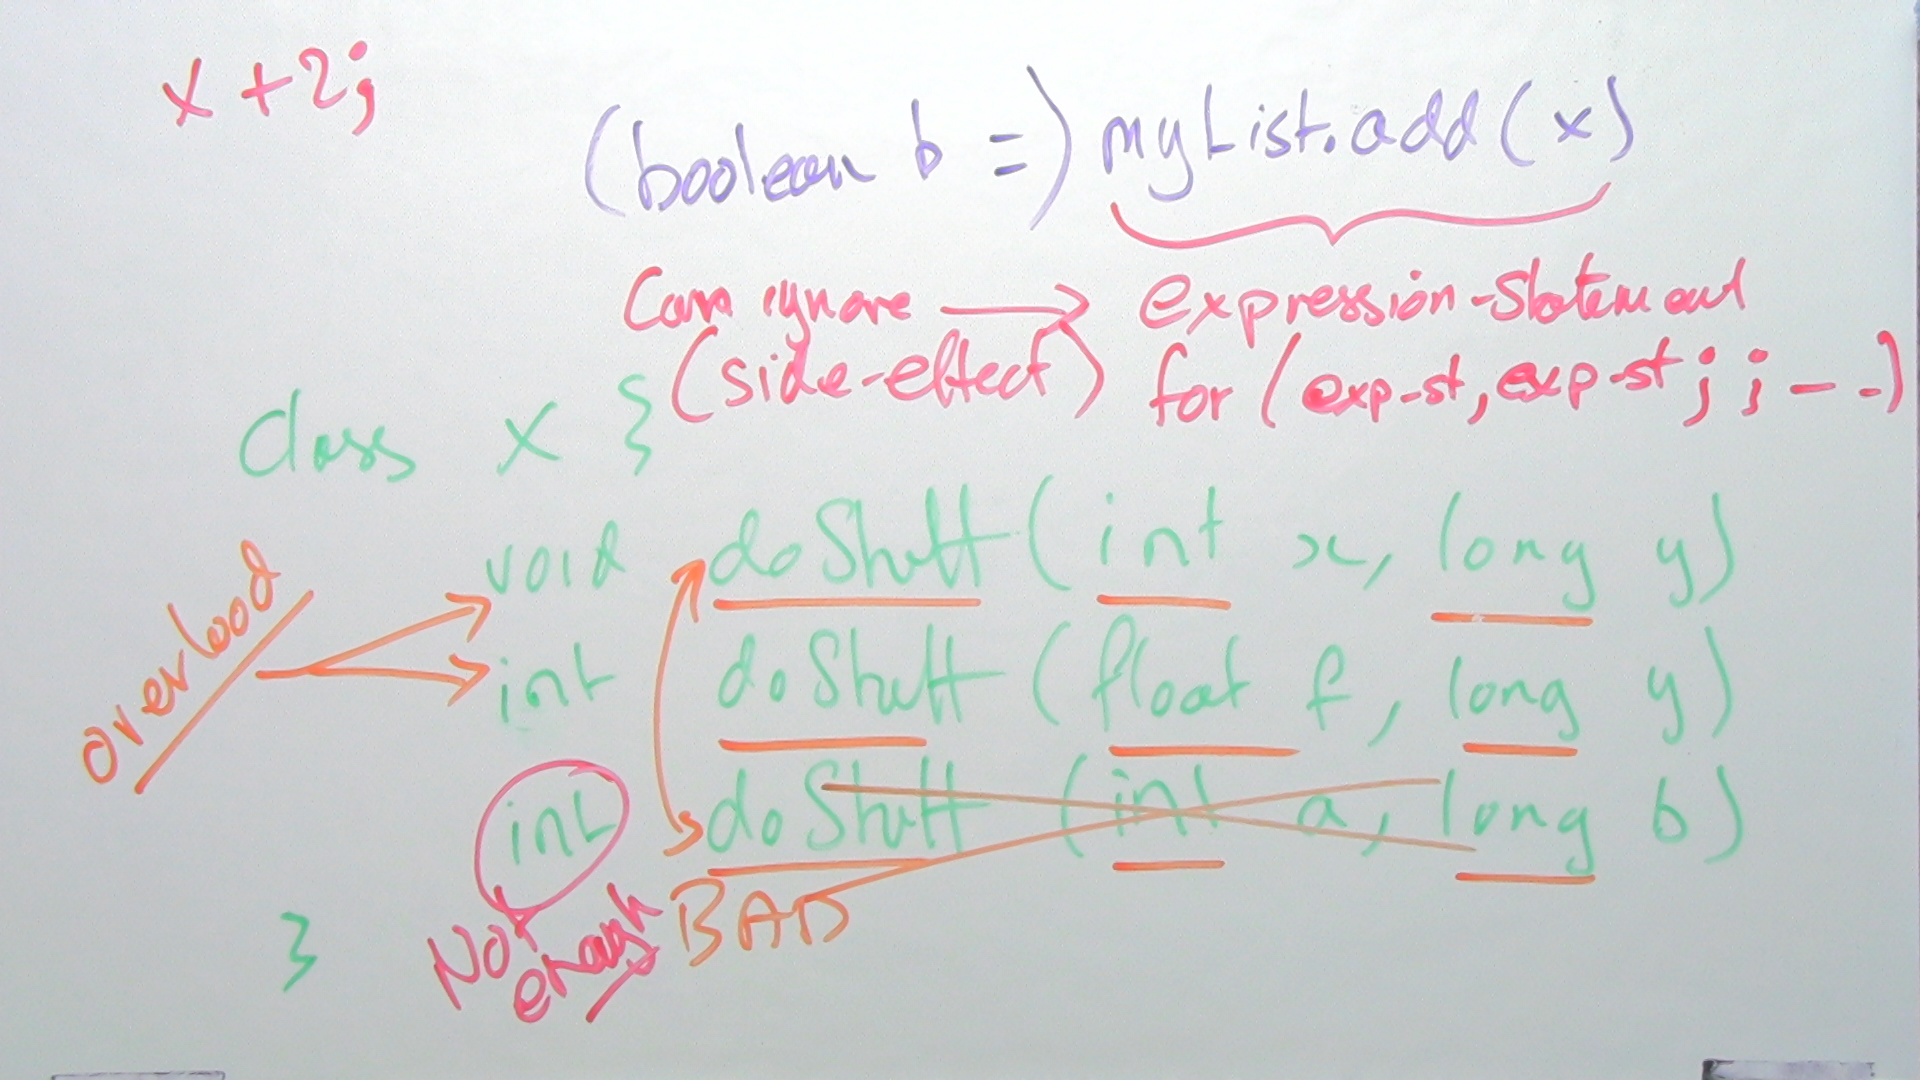 x + 2;
(boolean b =) myList.add(x)
Can ignore → expression-statement
(side-effect) for (exp-st, exp-st ; ; - - )
class X {
overload
void doStuff (int x, long y)
int doStuff (float f, long y)
int doStuff (int a, long b)
Not enough
BAD
}